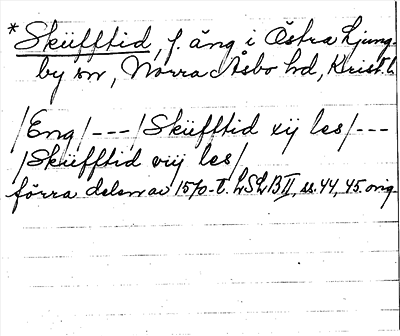 *Sküfftid, f. äng i Östra Ljung-
by sn, Norra Åsbo hd, Krist. l.
/Eng/---/Sküfftid xij les/---
/Sküfftid viij les/
förra delen av 1570-t. LSLB II, ss. 44, 45. orig.